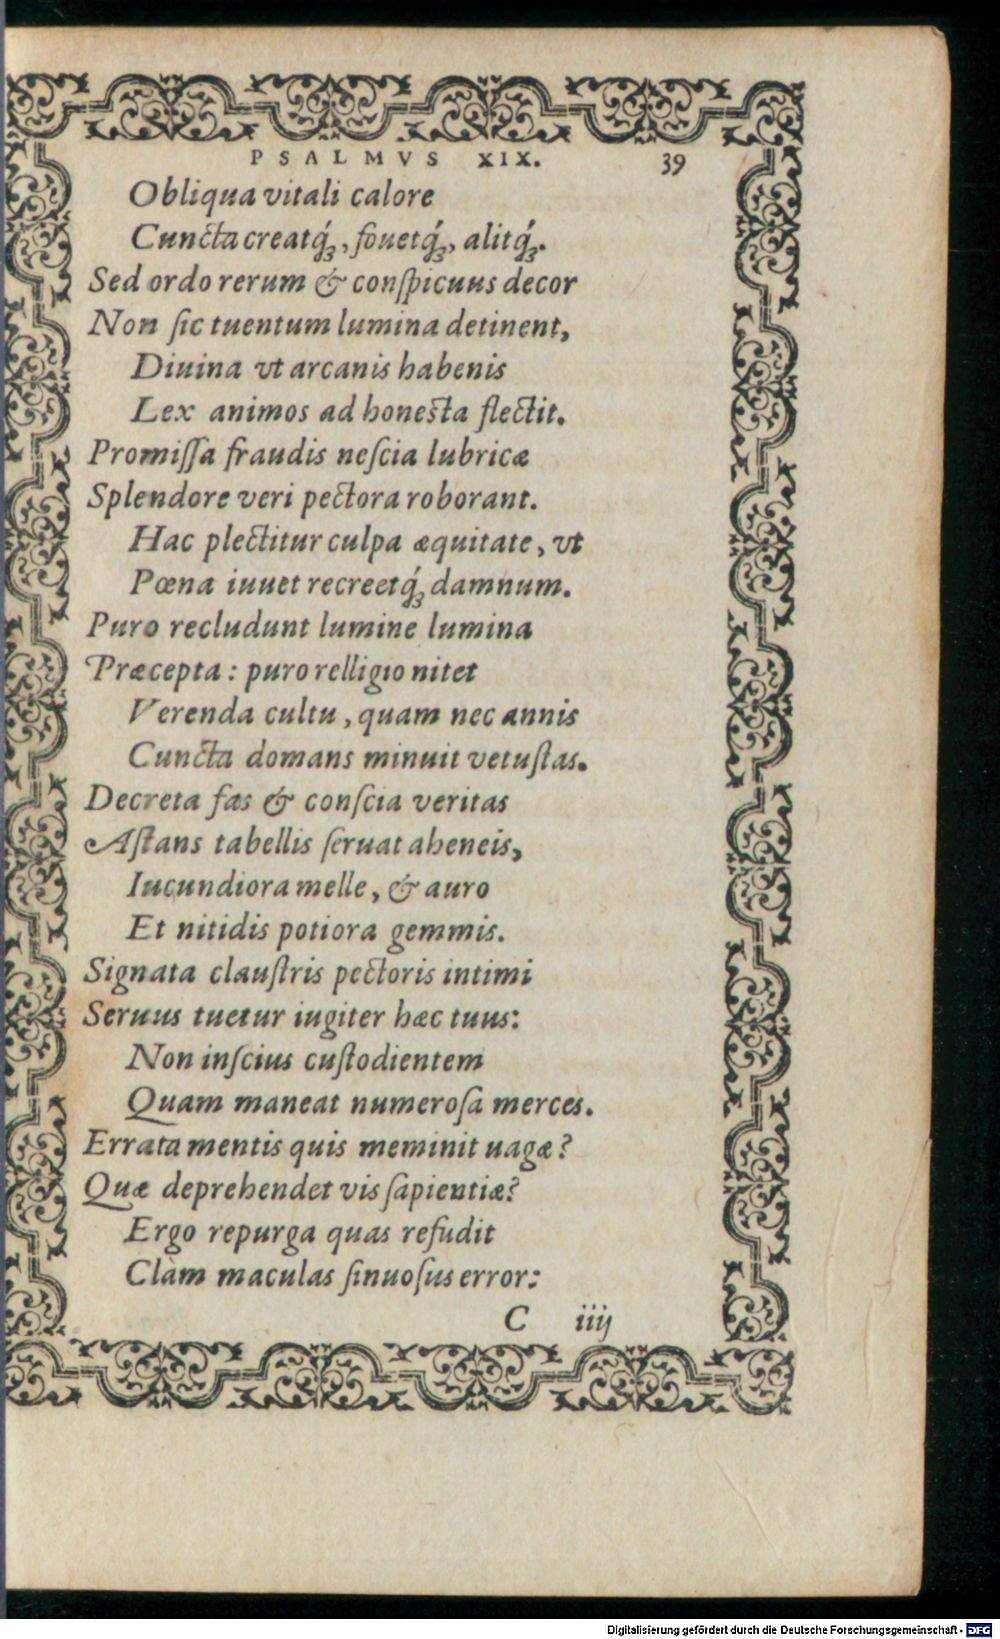 PSALMVS XIX. 39
Obliqua vitali calore
Cuncta creatq́ꝫ, fouetq́ꝫ, alitq́ꝫ.
Sed ordo rerum & conſpicuus decor
Non ſic tuentum lumina detinent,
Diuina vt arcanis habenis
Lex animos ad honeſta flectit.
Promiſſa fraudis neſcia lubricæ
Splendore veri pectora roborant.
Hac plectitur culpa æquitate, vt
Pœna iuuet recreetq́ꝫ damnum.
Puro recludunt lumine lumina
Præcepta: puro relligio nitet
Verenda cultu, quam nec annis
Cuncta domans minuit vetuſtas.
Decreta fas & conſcia veritas
Aſtans tabellis ſeruat aheneis,
Iucundiora melle, & auro
Et nitidis potiora gemmis.
Signata clauſtris pectoris intimi
Seruus tuetur iugiter hæc tuus:
Non inſcius cuſtodientem
Quam maneat numeroſa merces.
Errata mentis quis meminit uagæ?
Quæ deprehendet vis ſapientiæ?
Ergo repurga quas refudit
Clàm maculas ſinuoſus error:
C iiij
Digitalisierung gefördert durch die Deutsche Forschungsgemeinschaft - DFG